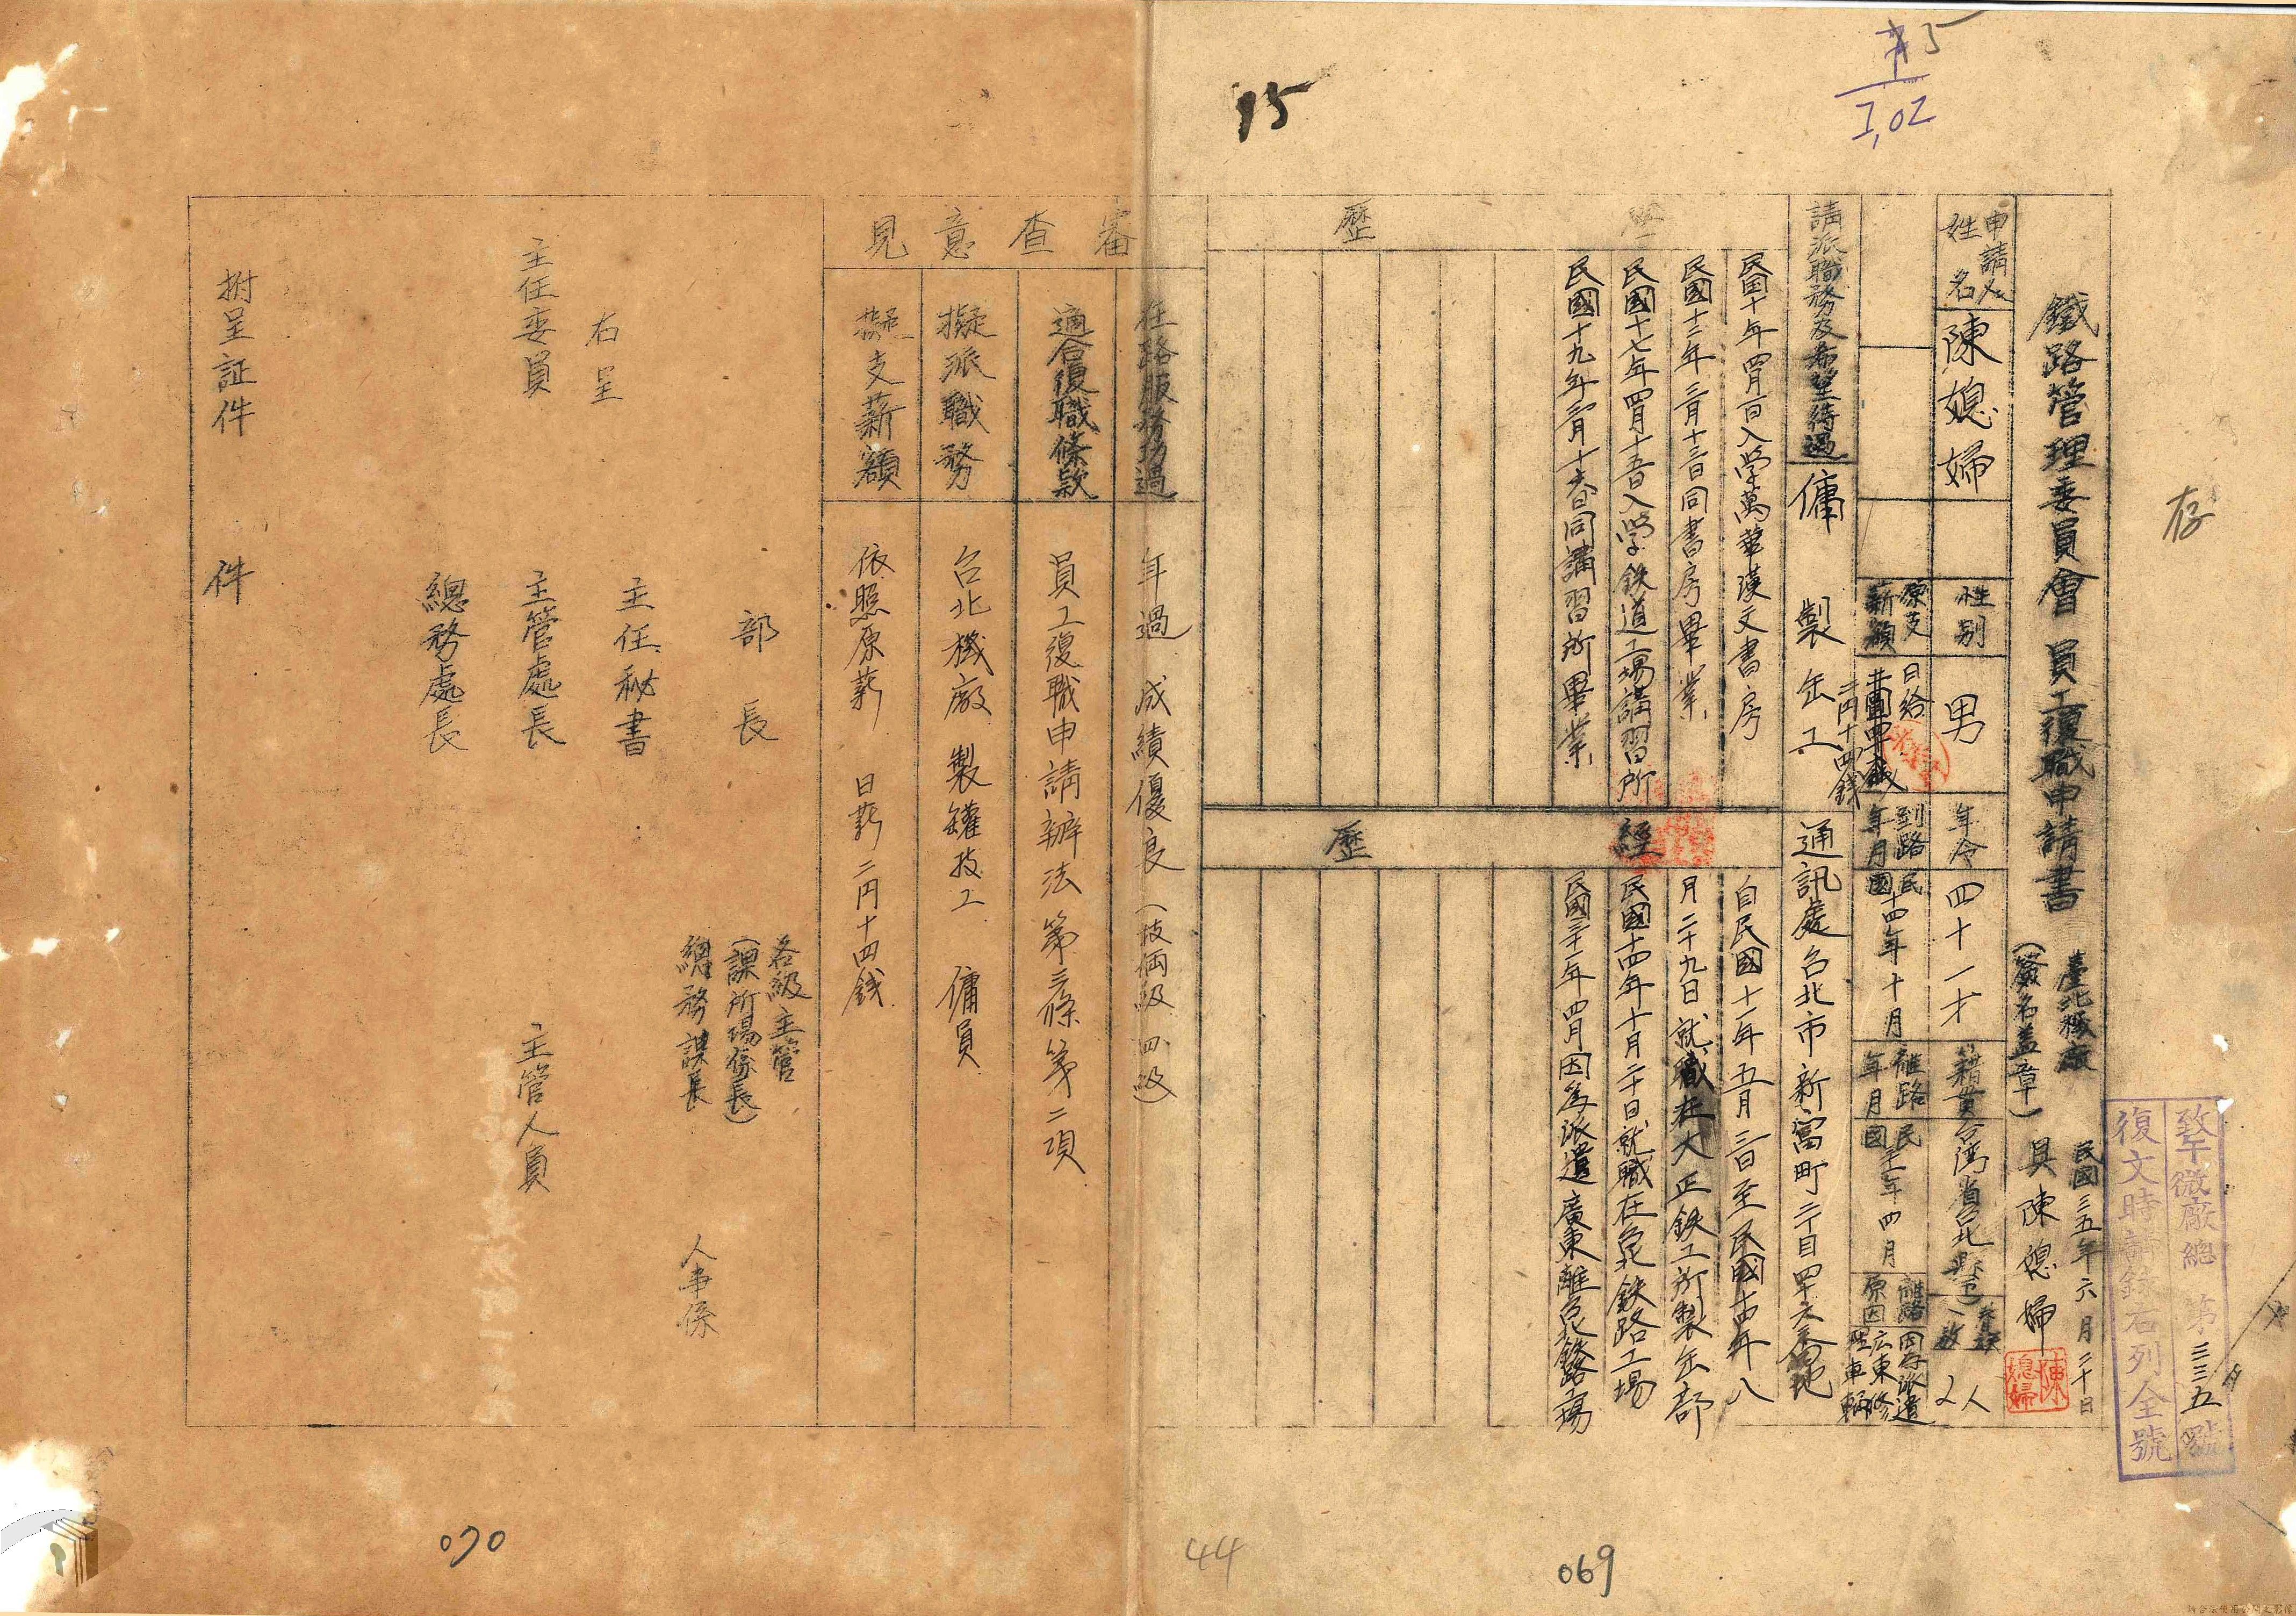 15
15
1,02
存
鐵路管理委員會 員工復職申請書
臺北機廠
(簽名盖章)
民國三五年六月二十日
具陳媳婦
陳媳婦
廠總 第三三五號
復文時請錄右列全號
申請人姓名
陳媳婦
性別
男
年令
四十一才
籍貫
台湾省台北縣
眷族人数
2人
原支薪額
日給
二円十四銭
到路年月
民國十四年十月
離路年月
民國三十一年四月
離路原因
因為派遣広東修理車輛
請派職務及希望待遇
傭 製缶工
通訊處
台北市新富町二丁目四十六番地
學歷
民国十年四月一日入学萬華漢文書房
民國十三年三月十三日同書房畢業
民國十七年四月十五日入学鉄道工場講習所
民國十九年三月十六日同講習所畢業
經歷
自民國十一年五月三日至民國十四年八
月二十九日就職在大正鉄工所製缶部
民國十四年十月二十日就職在台北鉄路工場
民國三十一年四月因為派遣廣東離台北鉄路工場
審查意見
在路服務功過
年過 成績優良(技術級四級)
適合復職條款
員工復職申請辦法第三條第二項
擬派職務
台北機廠 製罐技工 傭員
擬支薪額
依照原薪 日薪二円十四銭
部長
各級主管
(課所場係長)
總務課長
人事係
右呈
主任秘書
主任委員
主管處長
主管人員
總務處長
附呈証件 件
070
44
069